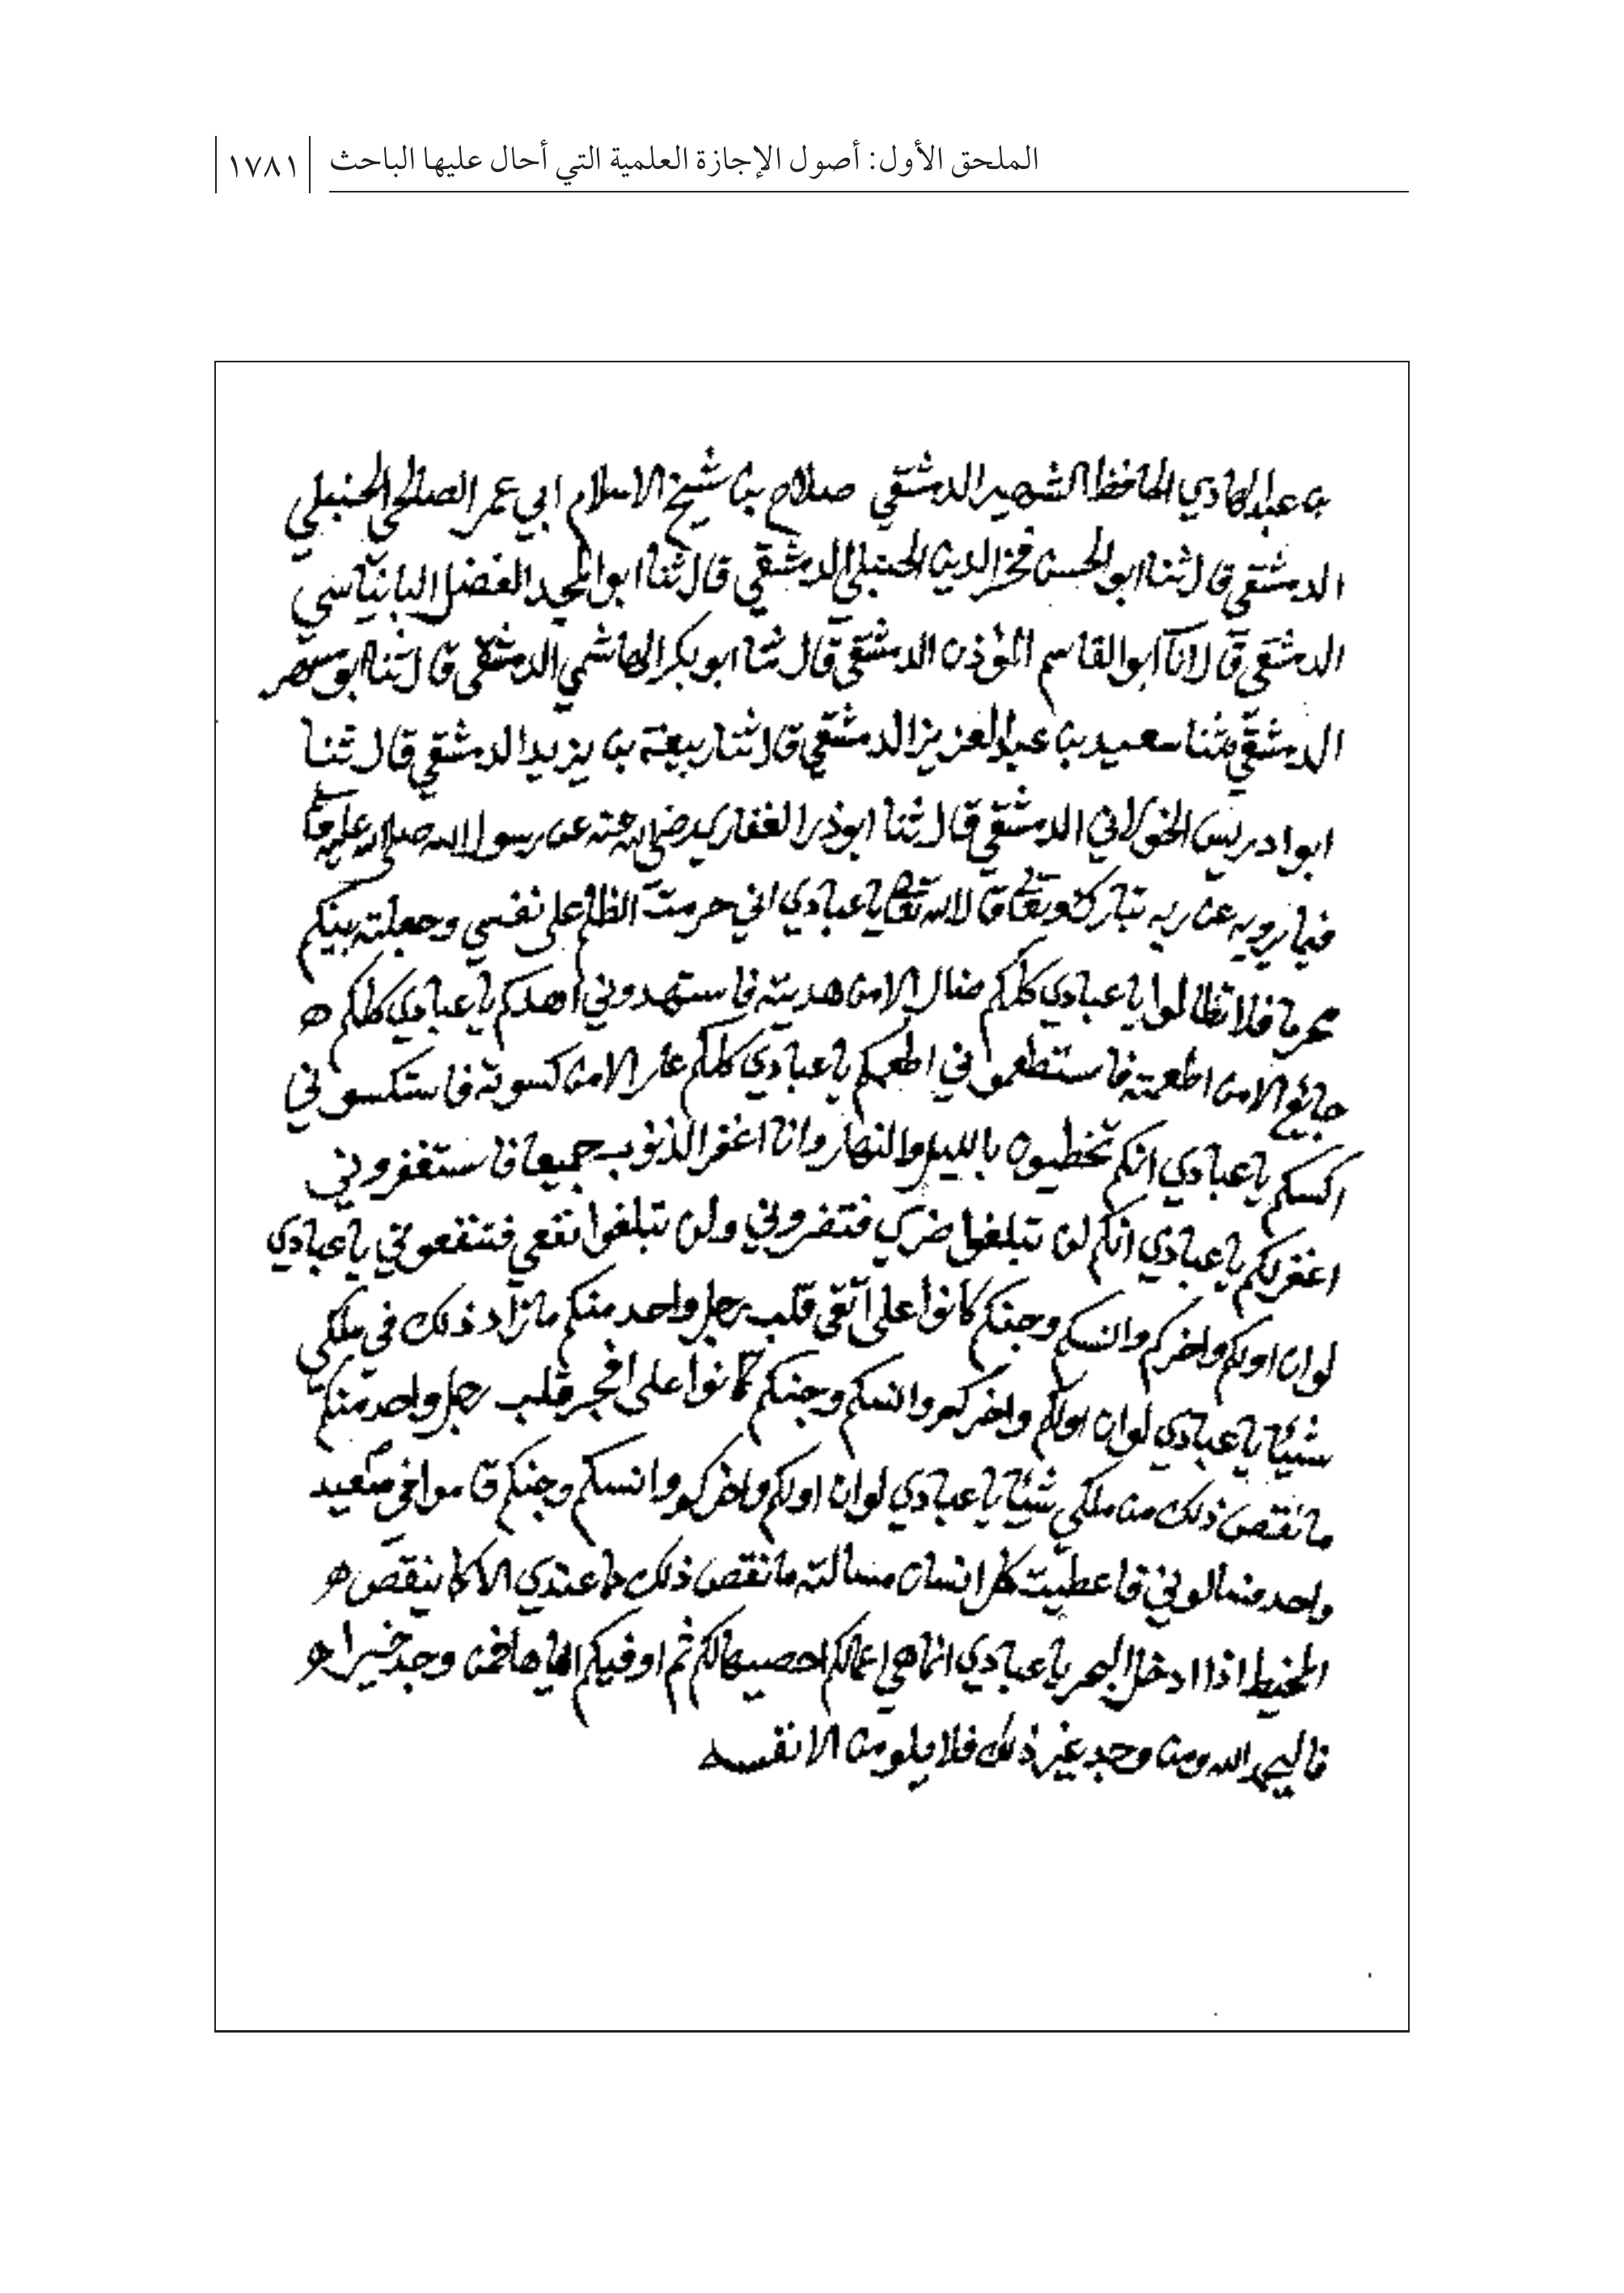 الملحق الأول: أصول الإجازة العلمية التي أحال عليها الباحث ١٧٨١
بن عبد الهادي الحافظ الشهير الدمشقي صلاح بن شيخ الاسلام ابي عمر الصالحي الحنبلي
الدمشقي قال ثنا ابو الحسن فخر الدين الحنبلي الدمشقي قال ثنا ابو المجد الفضل البانياسي
الدمشقي قال انا ابو القاسم المؤذن الدمشقي قال ثنا ابو بكر الهاشمي الدمشقي قال ثنا ابو مسهر
الدمشقي ثنا سعيد بن عبد العزيز الدمشقي قال ثنا ربيعة بن يزيد الدمشقي قال ثنا
ابو ادريس الخولاني الدمشقي قال ثنا ابو ذر الغفاري رضي الله عنه عن رسول الله صلى الله عليه
فيما يرويه عن ربه تبارك وتعالى قال الله تعالى يا عبادي اني حرمت الظلم على نفسي وجعلته بينكم
محرما فلا تظالموا يا عبادي كلكم ضال الا من هديته فاستهدوني اهدكم يا عبادي كلكم
جائع الا من اطعمته فاستطعموني اطعمكم يا عبادي كلكم عار الا من كسوته فاستكسوني
اكسكم يا عبادي انكم تخطيون بالليل والنهار وانا اغفر الذنوب جميعا فاستغفروني
اغفر لكم يا عبادي انكم لن تبلغوا ضري فتضروني ولن تبلغوا نفعي فتنفعوني يا عبادي
لو ان اولكم واخركم وانسكم وجنكم كانوا على اتقى قلب رجل واحد منكم ما زاد ذلك في ملكي
شيئا يا عبادي لو ان اولكم واخركم وانسكم وجنكم كانوا على افجر قلب رجل واحد منكم
ما نقص ذلك من ملكي شيئا يا عبادي لو ان اولكم واخركم وانسكم وجنكم قاموا في صعيد
واحد فسالوني فاعطيت كل انسان مسالته ما نقص ذلك مما عندي الا كما ينقص
المخيط اذا ادخل البحر يا عبادي انما هي اعمالكم احصيها لكم ثم اوفيكم اياها فمن وجد خيرا
فاليحمد الله ومن وجد غير ذلك فلا يلومن الا نفسه